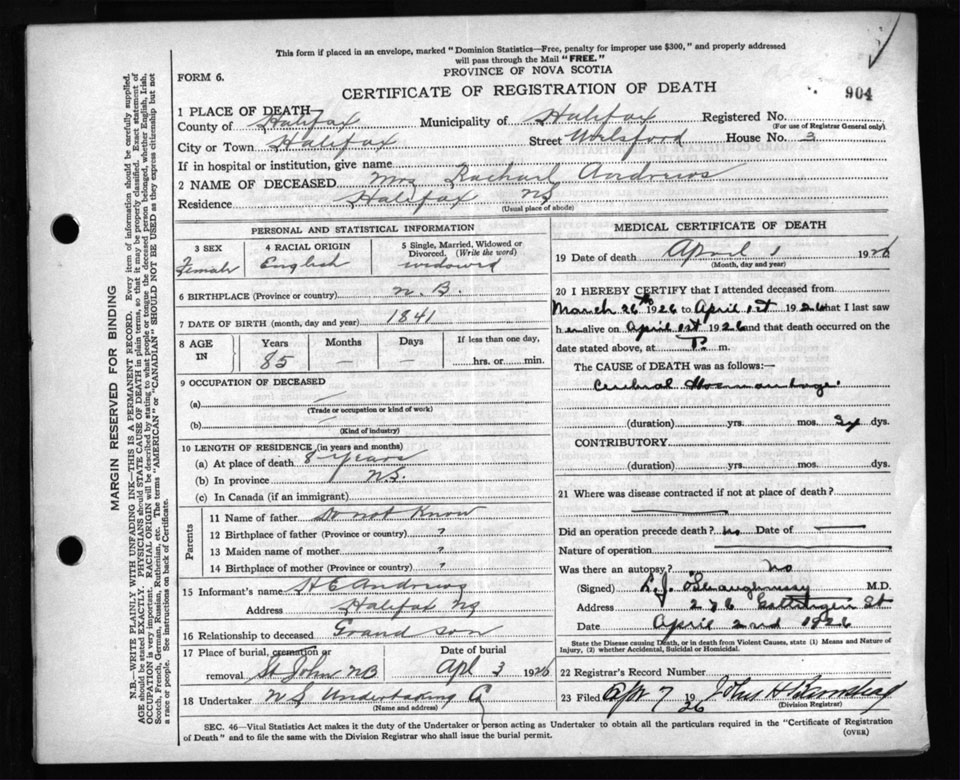 This form if placed in an envelope, marked "Dominion Statistics—Free, penalty for improper use $300," and properly addressed
will pass through the Mail "FREE."
FORM 6.
PROVINCE OF NOVA SCOTIA
CERTIFICATE OF REGISTRATION OF DEATH
904
1 PLACE OF DEATH—
County of Halifax Municipality of Halifax Registered No.
(For use of Registrar General only)
City or Town Halifax Street Welsford House No. 3
If in hospital or institution, give name
2 NAME OF DECEASED Mrs Rachael Andrews
Residence Halifax NS
(Usual place of abode)
PERSONAL AND STATISTICAL INFORMATION
3 SEX
Female
4 RACIAL ORIGIN
English
5 Single, Married, Widowed or
Divorced. (Write the word)
widowed
6 BIRTHPLACE (Province or country) N.B.
7 DATE OF BIRTH (month, day and year) 1841
8 AGE IN
Years
85
Months
—
Days
—
If less than one day,
hrs. or min.
9 OCCUPATION OF DECEASED
(a) —
(Trade or occupation or kind of work)
(b) —
(Kind of industry)
10 LENGTH OF RESIDENCE (in years and months)
(a) At place of death 8 Years
(b) In province NS.
(c) In Canada (if an immigrant)
Parents
11 Name of father Do not Know
12 Birthplace of father (Province or country) ?
13 Maiden name of mother ?
14 Birthplace of mother (Province or country) ?
15 Informant's name H E Andrews
Address Halifax NS
16 Relationship to deceased Grand son
17 Place of burial, cremation or
removal St. John NB
Date of burial
Apl 3 1926
18 Undertaker NS Undertaking Co
(Name and address)
MEDICAL CERTIFICATE OF DEATH
19 Date of death April 1 1926
(Month, day and year)
20 I HEREBY CERTIFY that I attended deceased from
March 26th 1926 to April 1st 1926 that I last saw
her alive on April 1st 1926 and that death occurred on
date stated above, at P. m.
The CAUSE of DEATH was as follows:—
Cerebral Hoemorrhage.
(duration) yrs. mos. dys.
CONTRIBUTORY
(duration) yrs. mos. dys.
21 Where was disease contracted if not at place of death?
Did an operation precede death? no Date of —
Nature of operation —
Was there an autopsy? no
(Signed) L.J. O'Shaughnessy M.D.
Address 276 Gottingen St
Date April 2nd 1926
State the Disease causing Death, or in death from Violent Causes, state (1) Means and Nature of
Injury, (2) whether Accidental, Suicidal or Homicidal.
22 Registrar's Record Number
23 Filed Apr 7 1926 John H Barnstead
(Division Registrar)
SEC. 46—Vital Statistics Act makes it the duty of the Undertaker or person acting as Undertaker to obtain all the particulars required in the "Certificate of Registration
of Death" and to file the same with the Division Registrar who shall issue the burial permit.
(OVER)
MARGIN RESERVED FOR BINDING
N.B.—WRITE PLAINLY WITH UNFADING INK—THIS IS A PERMANENT RECORD. Every item of information should be carefully supplied.
AGE should be stated EXACTLY. PHYSICIANS should STATE CAUSE OF DEATH in plain terms, so that it may be properly classified. Exact statement of
OCCUPATION is very important. RACIAL ORIGIN will be described by stating to what people or tongue the deceased person belonged, whether English, Irish,
Scotch, French, German, Russian, Ruthenian, etc. The terms "AMERICAN" or "CANADIAN" SHOULD NOT BE USED as they express citizenship but not
a race or people. See instructions on back of Certificate.